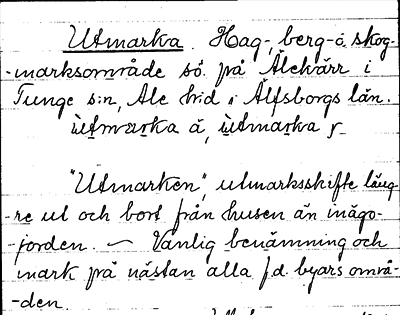 Utmarka. Hag-, berg- o. skog-
-marksområde sö. på Älekärr i
Tunge s:n, Ale h:d i Älfsborgs län.
ùtmarka ä, ùtmarka r
"Utmarken", utmarksskifte läng-
-re ut och bort från husen än inägo-
-jorden. ~ Vanlig benämning och
mark på nästan alla f.d. byars områ-
-den.